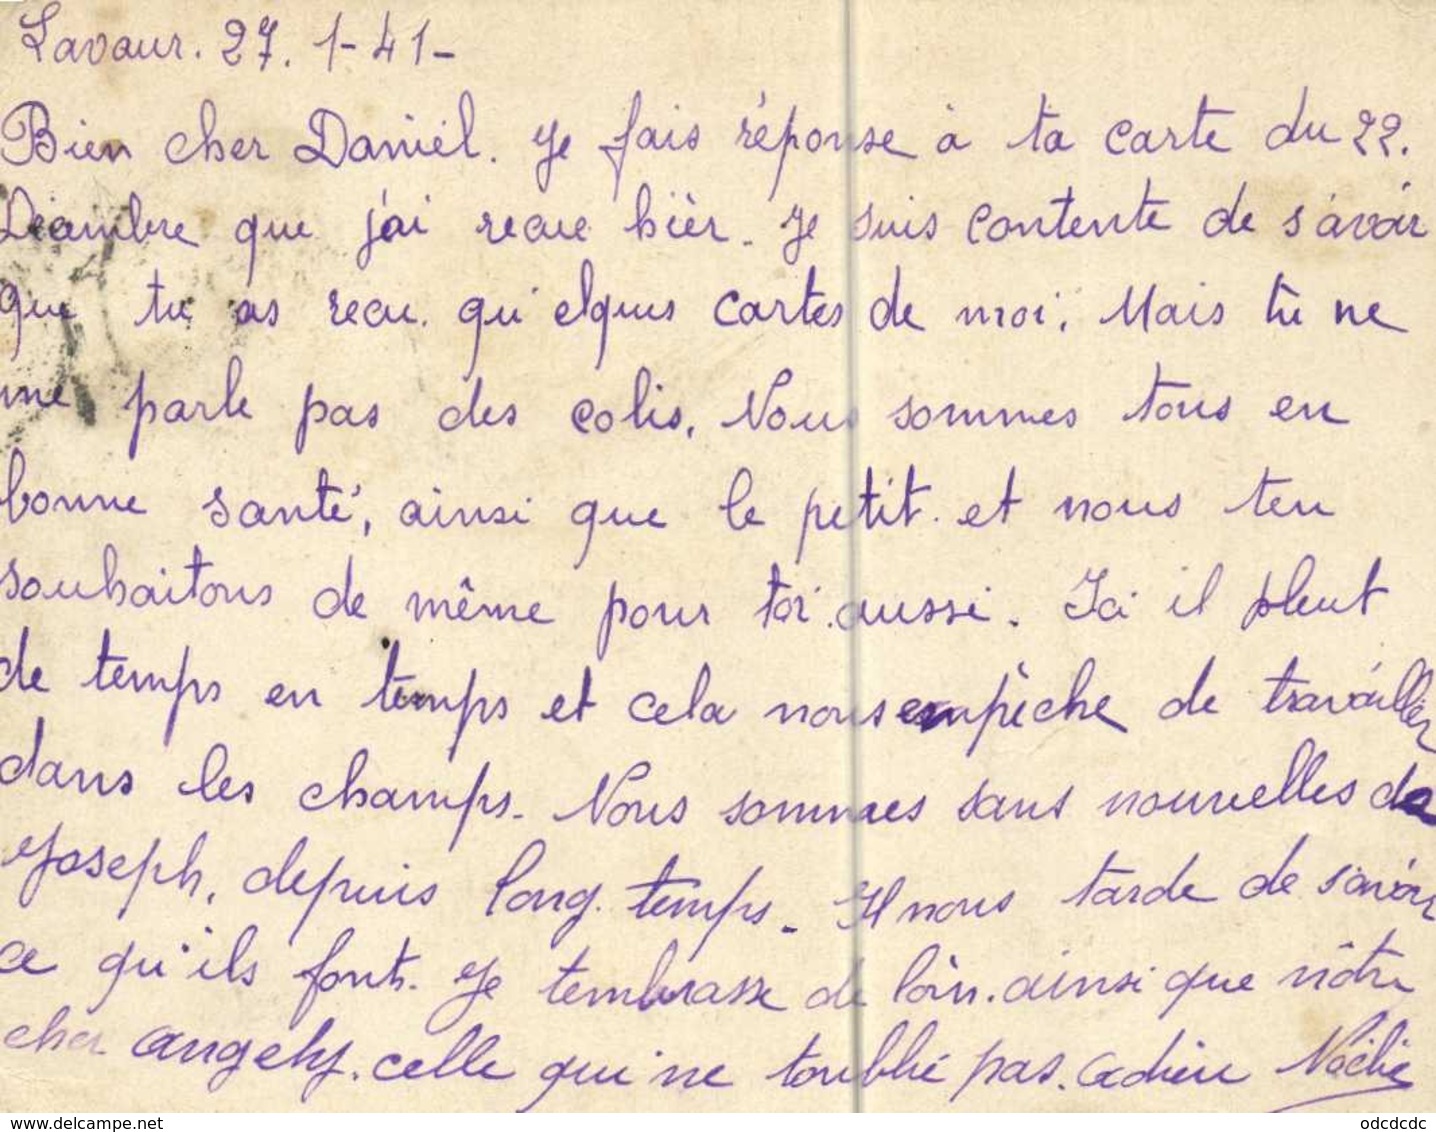 Lavaur. 27. 1-41-
Bien cher Daniel. Je fais réponse à ta carte du 22.
Décembre que j'ai recue hièr. Je suis contente de s'avoir
que tu as recu. qu'elques cartes de moi. Mais tu ne
me parle pas des colis. Nous sommes tous en
bonne santé, ainsi que le petit. et nous ten
souhaitons de même pour toi aussi. Ici il pleut
de temps en temps et cela nous empèche de travailler
dans les champs. Nous sommes sans nouvelles de
Joseph, depuis long. temps. Il nous tarde de s'avoir
ce qu'ils font. Je tembrasse de loin. ainsi que nôtre
cher angely. celle qui ne toublie pas. adieu Noélie
www.delcampe.net
odcdcdc